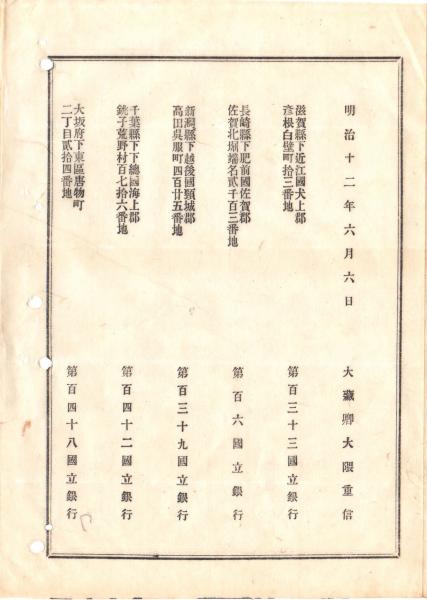 明治十二年六月六日
大藏卿大隈重信
滋賀縣下近江國犬上郡
彥根白壁町拾三番地
第百三十三國立銀行
長崎縣下肥前國佐賀郡
佐賀北堀端名貳千百三番地
第百六國立銀行
新潟縣下越後國頸城郡
高田呉服町四百廿五番地
第百三十九國立銀行
千葉縣下下總國海上郡
銚子荒野村百七拾六番地
第百四十二國立銀行
大坂府下東區唐物町
二丁目貳拾四番地
第百四十八國立銀行